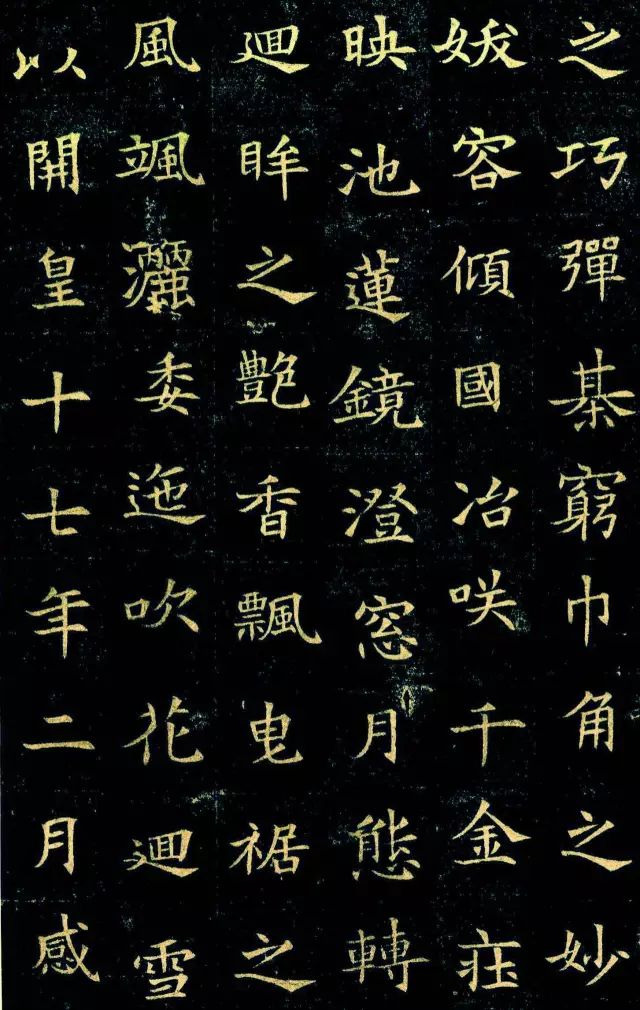 之巧彈棊窮巾角之妙
妖容傾國冶咲千金㽵
映池蓮鏡澄窓月態轉
迴眸之艶香飄曳裾之
風颯灑委迤吹花迴雪
以開皇十七年二月感